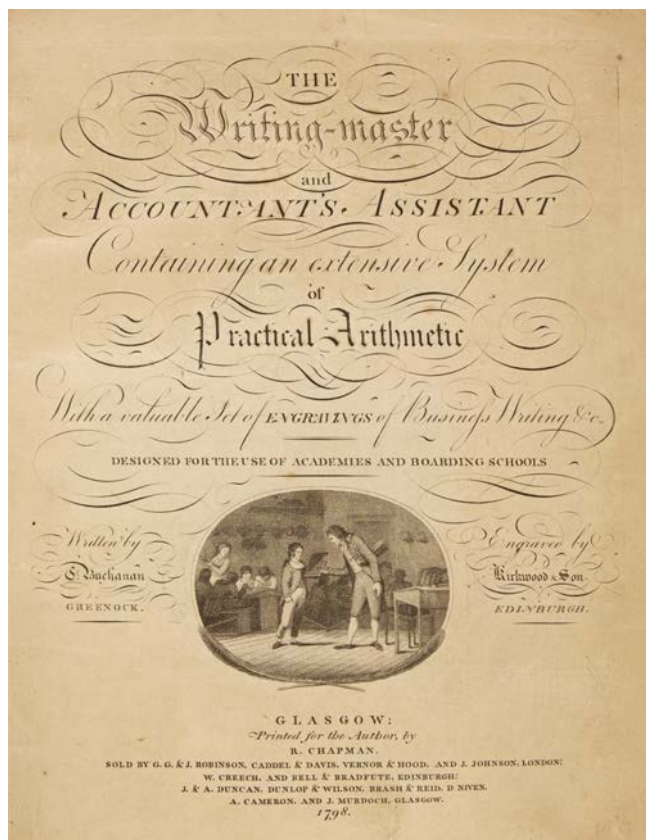 THE
Writing-master
and
ACCOUNTANT'S ASSISTANT
Containing an extensive System
of
Practical Arithmetic
With a valuable Set of ENGRAVINGS of Busineſs Writing &c.
DESIGNED FOR THE USE OF ACADEMIES AND BOARDING SCHOOLS
Written by
Buchanan
GREENOCK.
Engraved by
Kirkwood & Son
EDINBURGH.
GLASGOW:
Printed for the Author, by
R. CHAPMAN.
SOLD BY G. G. & J. ROBINSON, CADDEL & DAVIS, VERNOR & HOOD, AND J. JOHNSON, LONDON:
W. CREECH, AND BELL & BRADFUTE, EDINBURGH:
J. & A. DUNCAN, DUNLOP & WILSON, BRASH & REID, D NIVEN,
A. CAMERON, AND J. MURDOCH, GLASGOW.
1798.